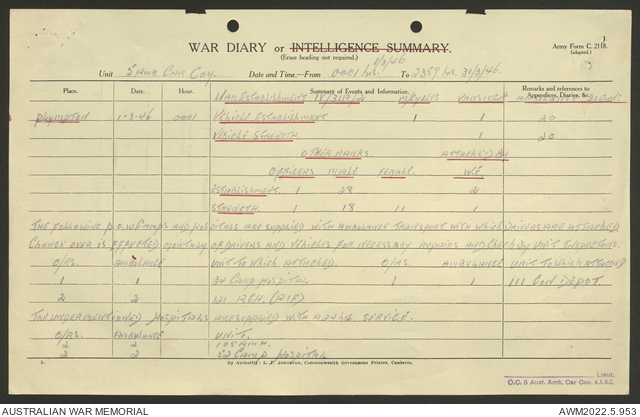 WAR DIARY or INTELLIGENCE SUMMARY.
(Erase heading not required.)
Army Form C. 2118.
(adapted.)
1/3/46
Unit 5 Amb Car Coy. Date and Time—From 0001 hrs. To 2359 hrs. 31/3/46.
Place. Date. Hour. Summary of Events and Information. Remarks and references to Appendices, Diaries, &c.
War Establishment
Plympton 1-3-46 0001 Vehicle Establishment 1 1 20
Vehicle Strength 1 20
Other Ranks. Attached
Officers Male Female. W.E
Establishment. 1 28 2
Strength 1 18 11 1
The following P.O.W Camps and Hospitals are supplied with Ambulance Transport with which drivers are attached
Change over is effected monthly of drivers and vehicles for necessary repairs and check by Unit Inspectors.
O/Rs. Ambulance Unit to which attached. O/Rs. Ambulance Unit to which attached
1 1 34 Camp Hospital 1 1 111 Con Depot
2 2 121 A.G.H. (AIF)
The undermentioned Hospitals are supplied with a 24 hrs. service.
O/Rs. Ambulance Unit.
2 2 105 A.M.H.
2 2 52 Camp Hospital
1. By Authority: L. F. Johnston, Commonwealth Government Printer, Canberra.
Lieut.
O.C. 5 Aust. Amb. Car Coy. A.A.S.C.
AUSTRALIAN WAR MEMORIAL
AWM2022.5.953